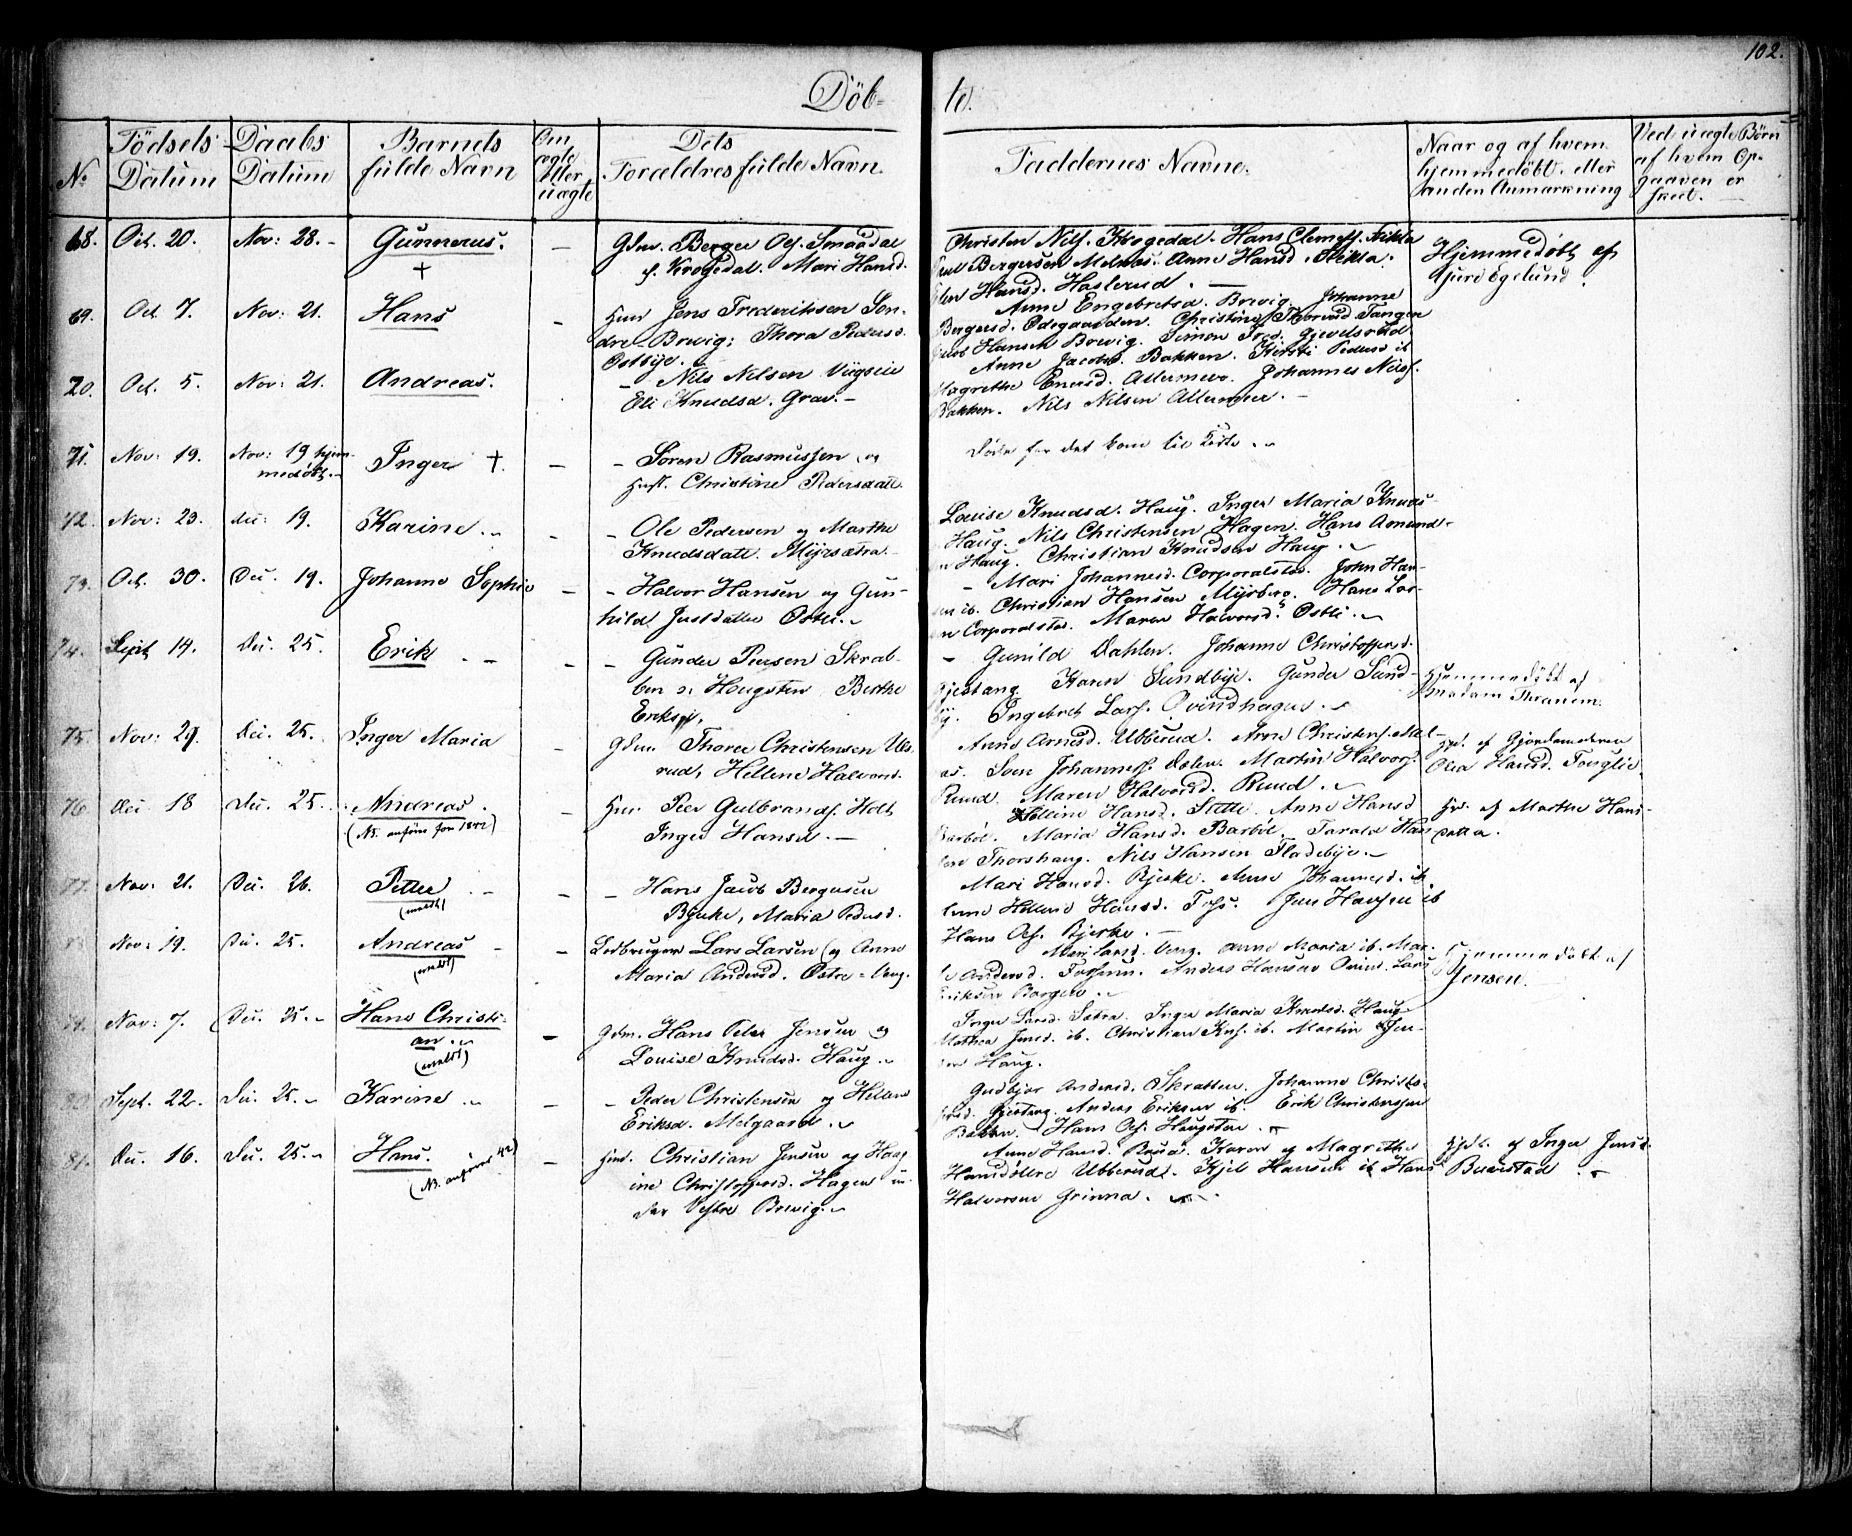 102.
Döb- te.
No
Födsels Datum
Daabs Datum
Barnets fulde Navn
Om ægte eller uægte
Dets Forældres fulde Navn.
Faddernes Navne.
Naar og af hvem hjemmedöbt, eller anden Anmærkning
Ved uægte Börn af hvem Opgaaven er skeet.
68. Oct. 20. Nov: 28. Gunnerus. † —
Gdm. Berger Ols. Smaadal
f. Krogedal. Mari Hansd.
Christen Nils. Krogedal. Hans Clemets. Sikla
Bergersen Melnes. Anne Hansd. Sikla.
Hansd. Haslerud. —
Hjemmedøbt af
Egelund.
69. Oct. 7. Nov: 21. Hans —
Huus Jens Frederiksen Son-
dre Brevig: Thora Peders.
Ostbye.
Anne Engebretsd. Brevig. Johanne
Bergersd. Odegaarden. Christine Thorvald Tangen
Hansen Brevig. Simon Fred. Gjevelsrud
70. Oct. 5. Nov: 21. Andreas.
— Nils Nilsen Vigseie
Eli Knudsd. Grav. —
Anne Jacobs. Bakken. Kersti Pedersd ib
Magrethe Enersd. Allermoer. Johannes Nils.
Bakken. Nils Nilsen Allermoer. —
71. Nov: 19. Nov: 19 hjem-
medøbt. Inger †. —
— Søren Rasmussen og
Hust. Christine Pedersdatt.
Døde før det kom til Kirke.
72. Nov: 23. Dec: 19. Karine. —
— Ole Pedersen og Marthe
Knudsdatt. Myrsætra. —
Louise Knudsd. Haug. Inger Maria Knuds-
Haug. Nils Christensen Hagen. Hans Amund-
Haug. Christian Knudsen Haug.
73. Oct. 30. Dec. 19. Johanne Sophie —
— Halvor Hansen og Gun-
hild Justdatter Ostli.
— Mari Johannesd. Corporalstad. John Han-
sen ib. Christian Hansen Myrberg. Hans Lar-
sen Corporalstad. Maren Halvorsd. Ostli.
74. Sept 14. Dec. 25. Erik. —
— Gunder Pensen Skrab-
ben s: Hougsten Berthe
Eriks.
— Gunild Dahlen. Johanne Christoffersd.
Gjestang. Karen Sundbye. Gunder Sund-
by. Ingebret Lars. Ovindhagen.
Hjemmedöbt af
Madam Thranem.
75. Nov: 29. Dec. 25. Inger Maria —
Gdm. Thorer Christensen Ub-
rud, Hellene Halvorsd.
Anne Arnesd. Ubberud. Aren Christens. Mel-
Sven Johanness. Dølen. Martin Halvors.
Ruud. Maren Halvorsd. Ruud.
Hjd. af Gjordemoderen
Olea Hansd.
76. Dec 18 Dec. 25. Andreas.
(NB. anføres for 1842)
Hm. Peer Gulbrands. Holt
Inger Hansd. —
Helline Hansd. Anne Hansd
Barböl. Maria Hansd. Barböl. Tarald Han-
sen Thorshaug. Nils Hansen Fladebye.
Hjd. af Marthe Hans-
datter.
77. Nov: 21. Dec. 26. Petter
(meldt)
— Hans Jacob Bergersen
Bjerke, Maria Pedersd.
Mari Hansd. Bjerke. Anne Johannesd. ib
Anne Hellene Hansd. Foss. Jens Hansen ib
Hans Ols. Bjerke. —
Nov: 19. Dec. 25. Andreas —
(meldt)
Ledbruger Lars Larsen og Anne
Maria Andersd. Østre-Veng.
Mari Larsd. Veng. Anne Maria ib. Mar.
Andersd. Anders Hansen Lars
Eriksen Borgen.
Hjemmedöbt af
Jensen.
Nov: 7. Dec. 25. Hans Christi-
an. (meldt) —
Gdm. Hans Peter Jensen og
Louise Knudsd. Haug.
Inger Larsd. Sætra. Inger Maria Knudsd. Haug
Mathea Jensd. ib. Christian Kns. ib. Martin Jen-
sen Haug.
Sept. 22. Dec. 25. Karine. —
— Peder Christensen og Hellene
Eriksd. Melgaard.
Gudbjør Andersd. Skratten. Johanne Christo-
fersd. Gjestang. Anders Eriksen ib. Erik Christensen
Bakken. Hans Ols. Haugsten.
81. Dec. 16. Dec. 25. Hans. —
(NB. anføres 42)
Hm. Christian Jensen og Hans-
ine Christoffersd. Hagen un-
der Vestre Brevig.
Anne Hansd. Ruud. Karen og Magrethe
Hansdøttre Ubberud. Kjel Hansen ib Hans
Halvorsen Grinna.
Hjdt. af Inger Jensd.
Buerstad.